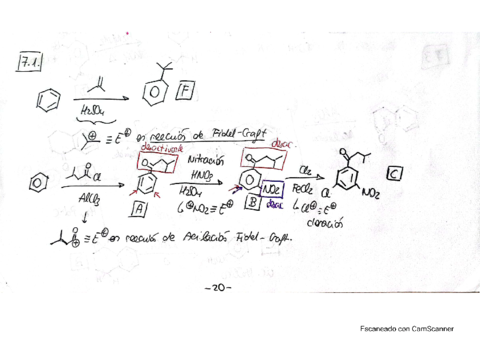 7.1.
H₂SO₄
F
⊕ ≡ E⊕ en reacción de Fridel-Craft
desactivante
desac.
Nitración
Cl
HNO₃
Cl₂
C
AlCl₃
H₂SO₄
NO₂
FeCl₃
Cl
NO₂
A
⊕NO₂ ≡ E⊕
B
desac
Cl⊕ ≡ E⊕
cloración
≡ E⊕ en reacción de Acilación Fridel-Craft.
-20-
Escaneado con CamScanner